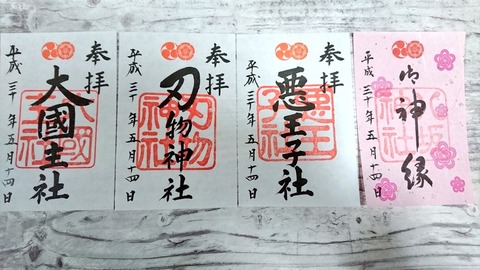 奉拝
大國主社
平成三十年五月十四日
奉拝
刃物神社
平成三十年五月十四日
奉拝
悪王子社
平成三十年五月十四日
御神縁
平成三十年五月十四日